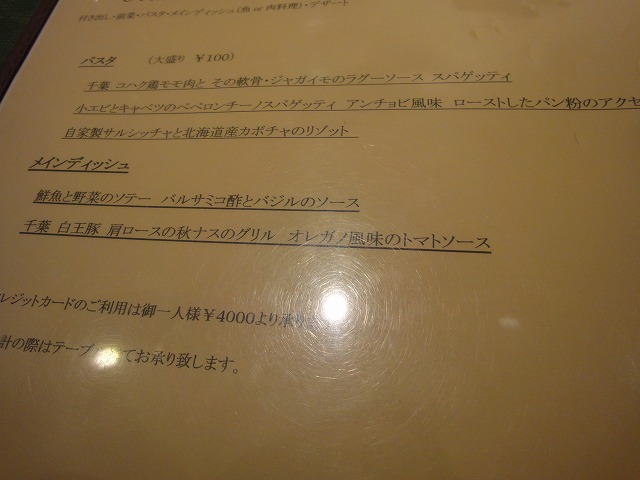 付き出し・前菜・パスタ・メインディッシュ(魚 or 肉料理)・デザート
パスタ (大盛り ¥100)
千葉 コハク鶏モモ肉と その軟骨・ジャガイモのラグーソース スパゲッティ
小エビとキャベツのペペロンチーノスパゲッティ アンチョビ風味 ローストしたパン粉のアクセ
自家製サルシッチャと北海道産カボチャのリゾット
メインディッシュ
鮮魚と野菜のソテー バルサミコ酢とバジルのソース
千葉 白王豚 肩ロースの秋ナスのグリル オレガノ風味のトマトソース
レジットカードのご利用は御一人様¥4000より承り
計の際はテーブ てお承り致します。